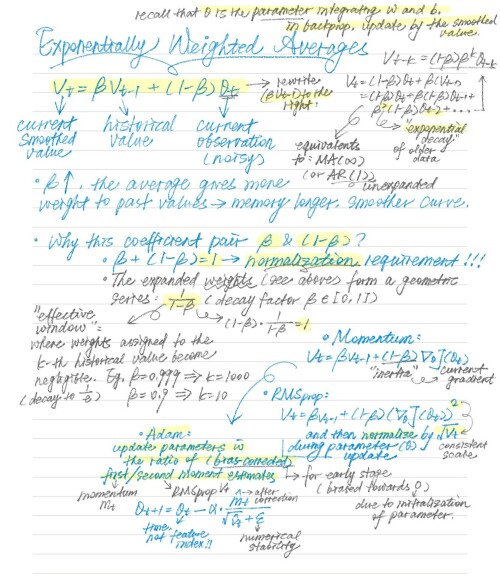 recall that θ is the parameter integrating w and b.
in backprop, update by the smoothed value.
Exponentially Weighted Averages
V_t = βV_{t-1} + (1-β)θ_t → rewrite (βV_{t-1}) to the right:
V_t = (1-β)θ_t + β(V_{t-1})
= (1-β)θ_t + β(1-β)θ_{t-1} +
β²(1-β)θ_{t-2} + ....
V_{t-k} = (1-β)β^k θ_{t-k}
"exponential decay" of older data
current smoothed value
historical value
current observation (noisy)
equivalents to: MA(∞)
(or AR(1)) unexpanded
• β↑, the average gives more
weight to past values → memory longer, smoother curve.
• Why this coefficient pair β & (1-β)?
• β + (1-β) = 1 → normalization requirement!!!
• The expanded weights (see above) form a geometric
series: 1/(1-β) (decay factor β ∈ [0,1])
(1-β) · 1/(1-β) = 1
"effective window":
where weights assigned to the
k-th historical value become
negligible. Eg. β=0.999 ⇒ k=1000
(decay to 1/e) β=0.9 ⇒ k=10
• Momentum:
V_t = βV_{t-1} + (1-β) ∇_θ J(θ_t)
"inertia"
current gradient
• RMSprop:
V_t = βV_{t-1} + (1-β)(∇_θ J(θ_t))²
and then normalize by √V_t
during parameter (θ) update
consistent scale
• Adam:
update parameters is
the ratio of (bias-corrected)
first/second moment estimates
→ for early stage
(biased towards 0)
due to initialization
of parameter.
momentum m_t
RMSprop v_t
^ → after correction
θ_{t+1} = θ_t - α · m̂_t / (√v̂_t + ε)
time, not feature index!!
numerical stability